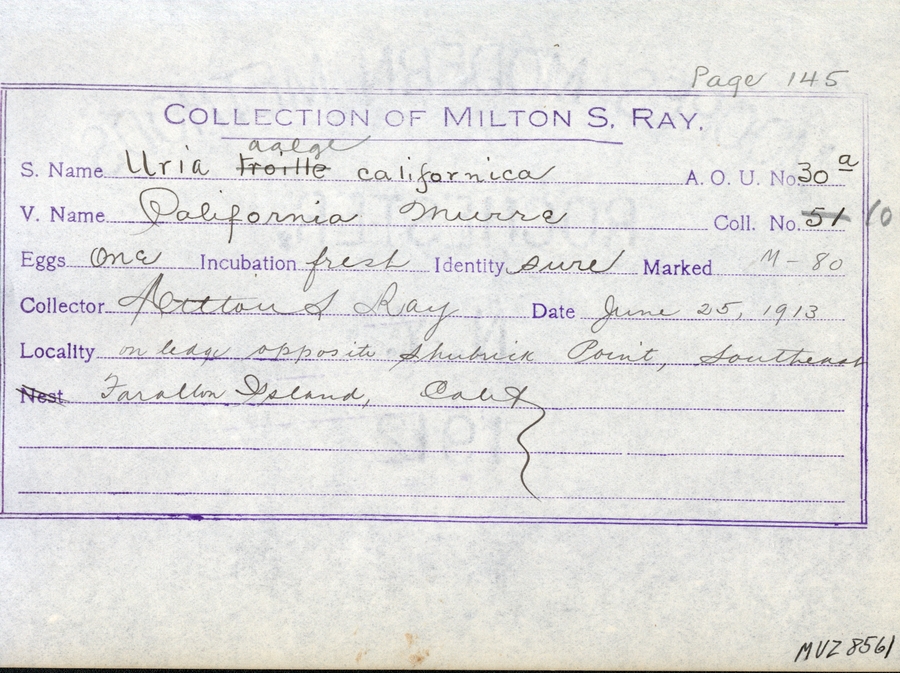 Page 145
COLLECTION OF MILTON S. RAY.
aalge
S. Name Uria troille californica A. O. U. No. 30a
V. Name California Murre Coll. No. 51 10
Eggs One Incubation fresh Identity sure Marked M-80
Collector Milton S Ray Date June 25, 1913
Locality on ledge opposite Shubrick Point, Southeast
Nest Farallon Island, Calif
MVZ 8561